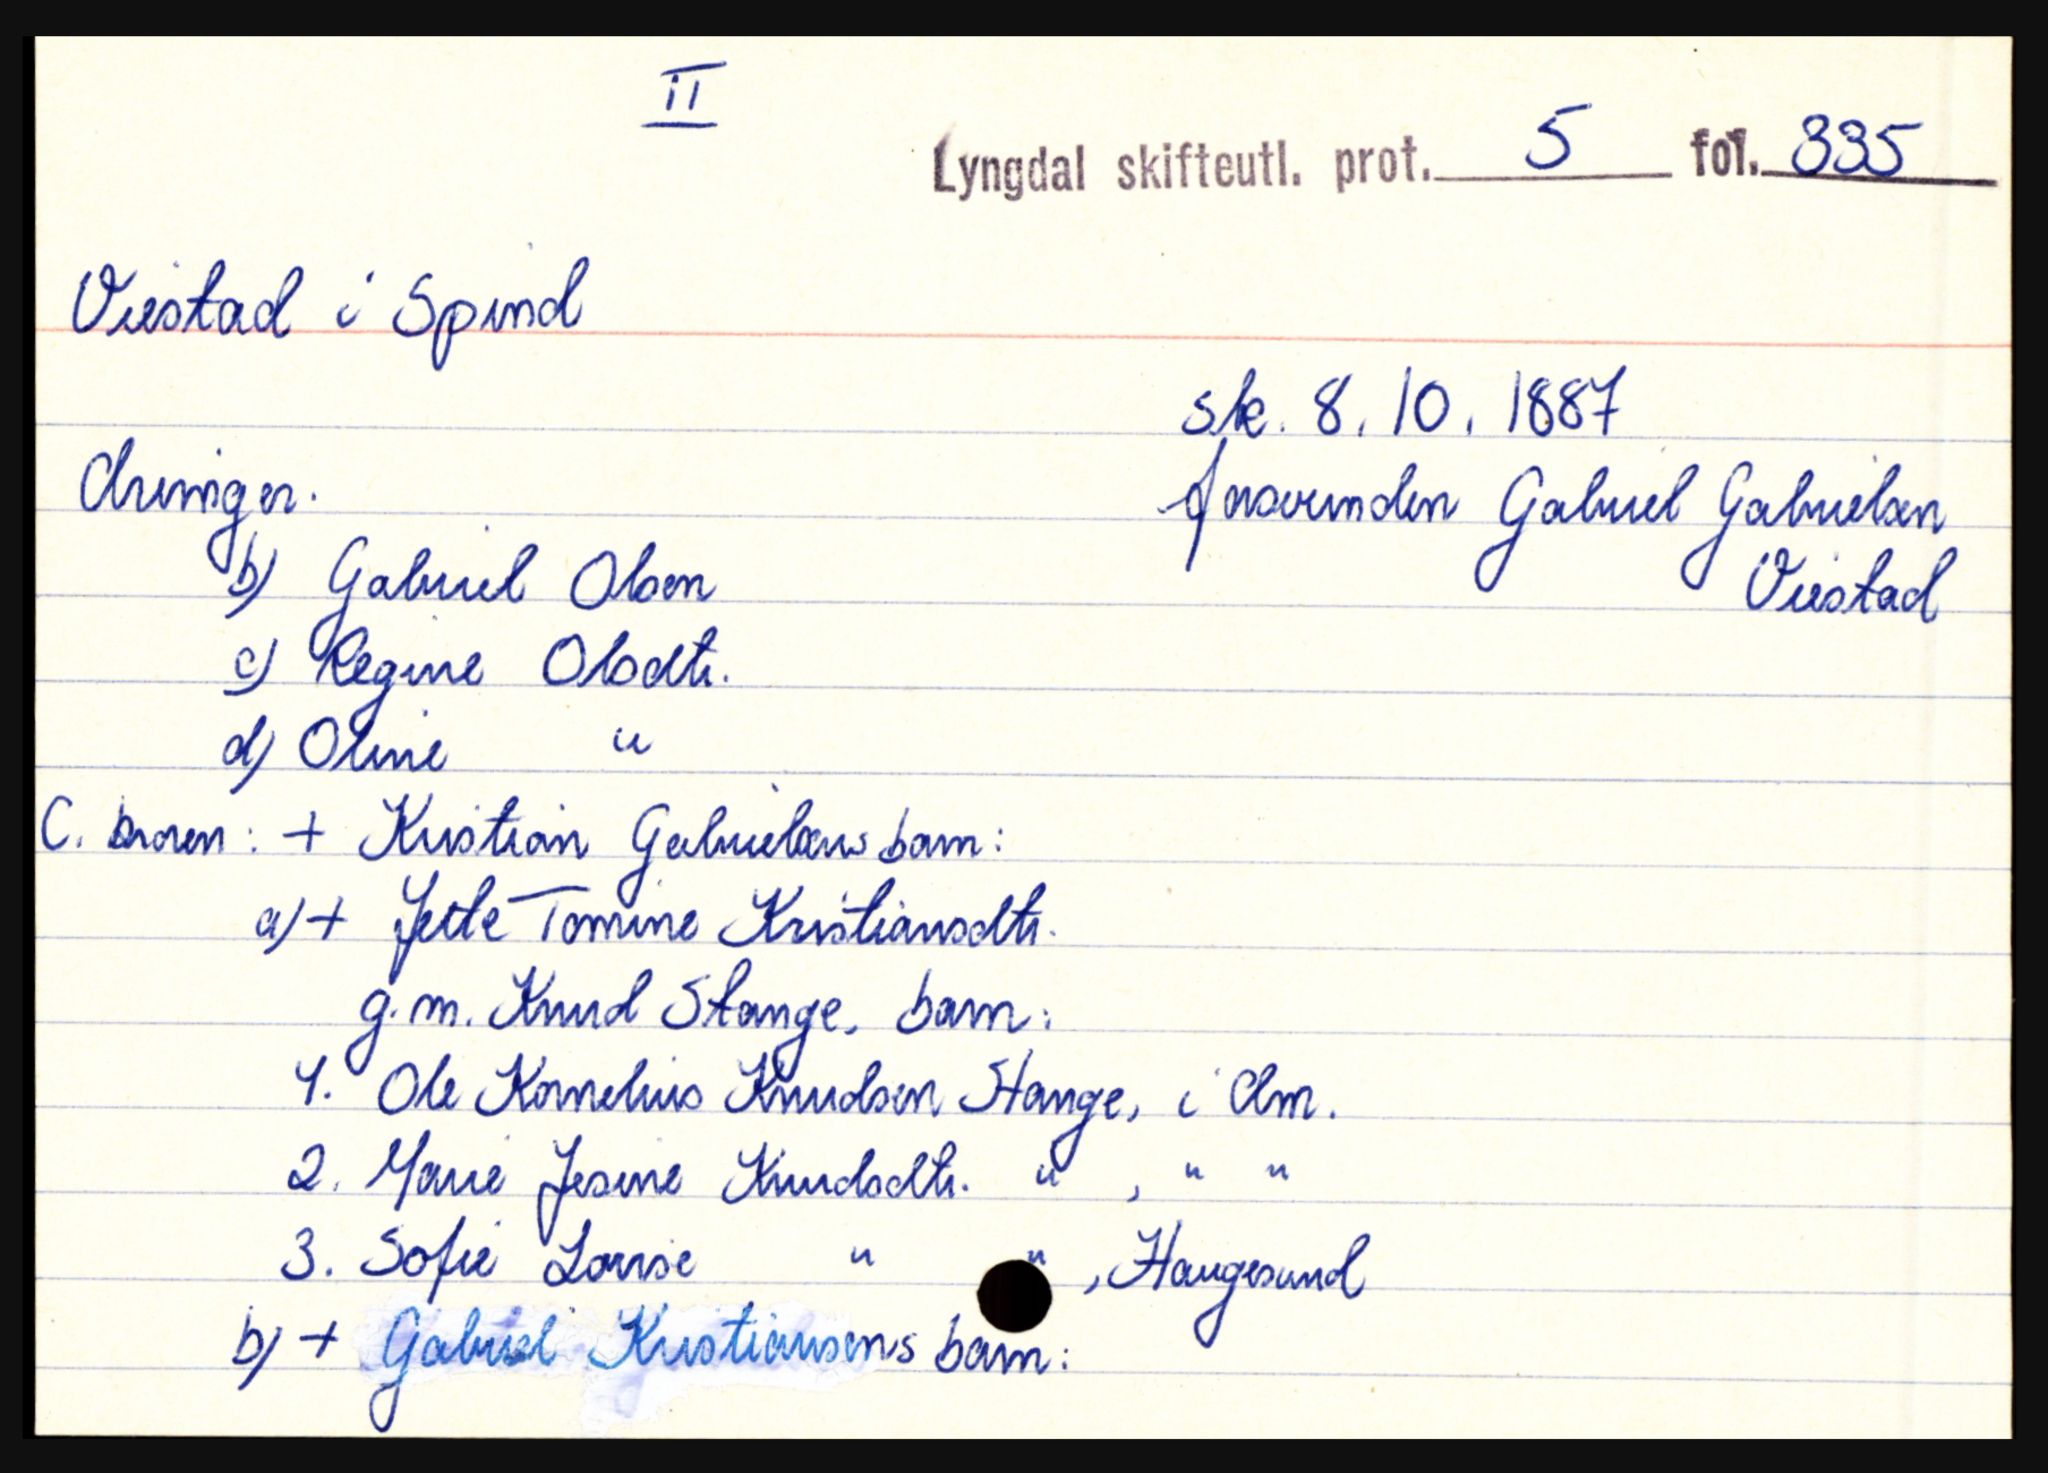 II
Lyngdal skifteutl. prot. 5 fol. 335
Viestad i Spind
sk. 8.10.1887
Arvinger.
forsvunden Gabriel Gabrielsen
Viestad
b) Gabriel Olsen
c) Regine Olsdtr.
d) Oline "
C. broren: + Kristian Gabrielsens barn:
a) + Jette Tomine Kristiansdtr.
g.m. Knud Stange, barn:
1. Ole Kornelius Knudsen Stange, i Am.
2. Marie Jesine Knudsdtr. " , " "
3. Sofie Lovise " " , Haugesund
b) + Gabriel Kristiansens barn: